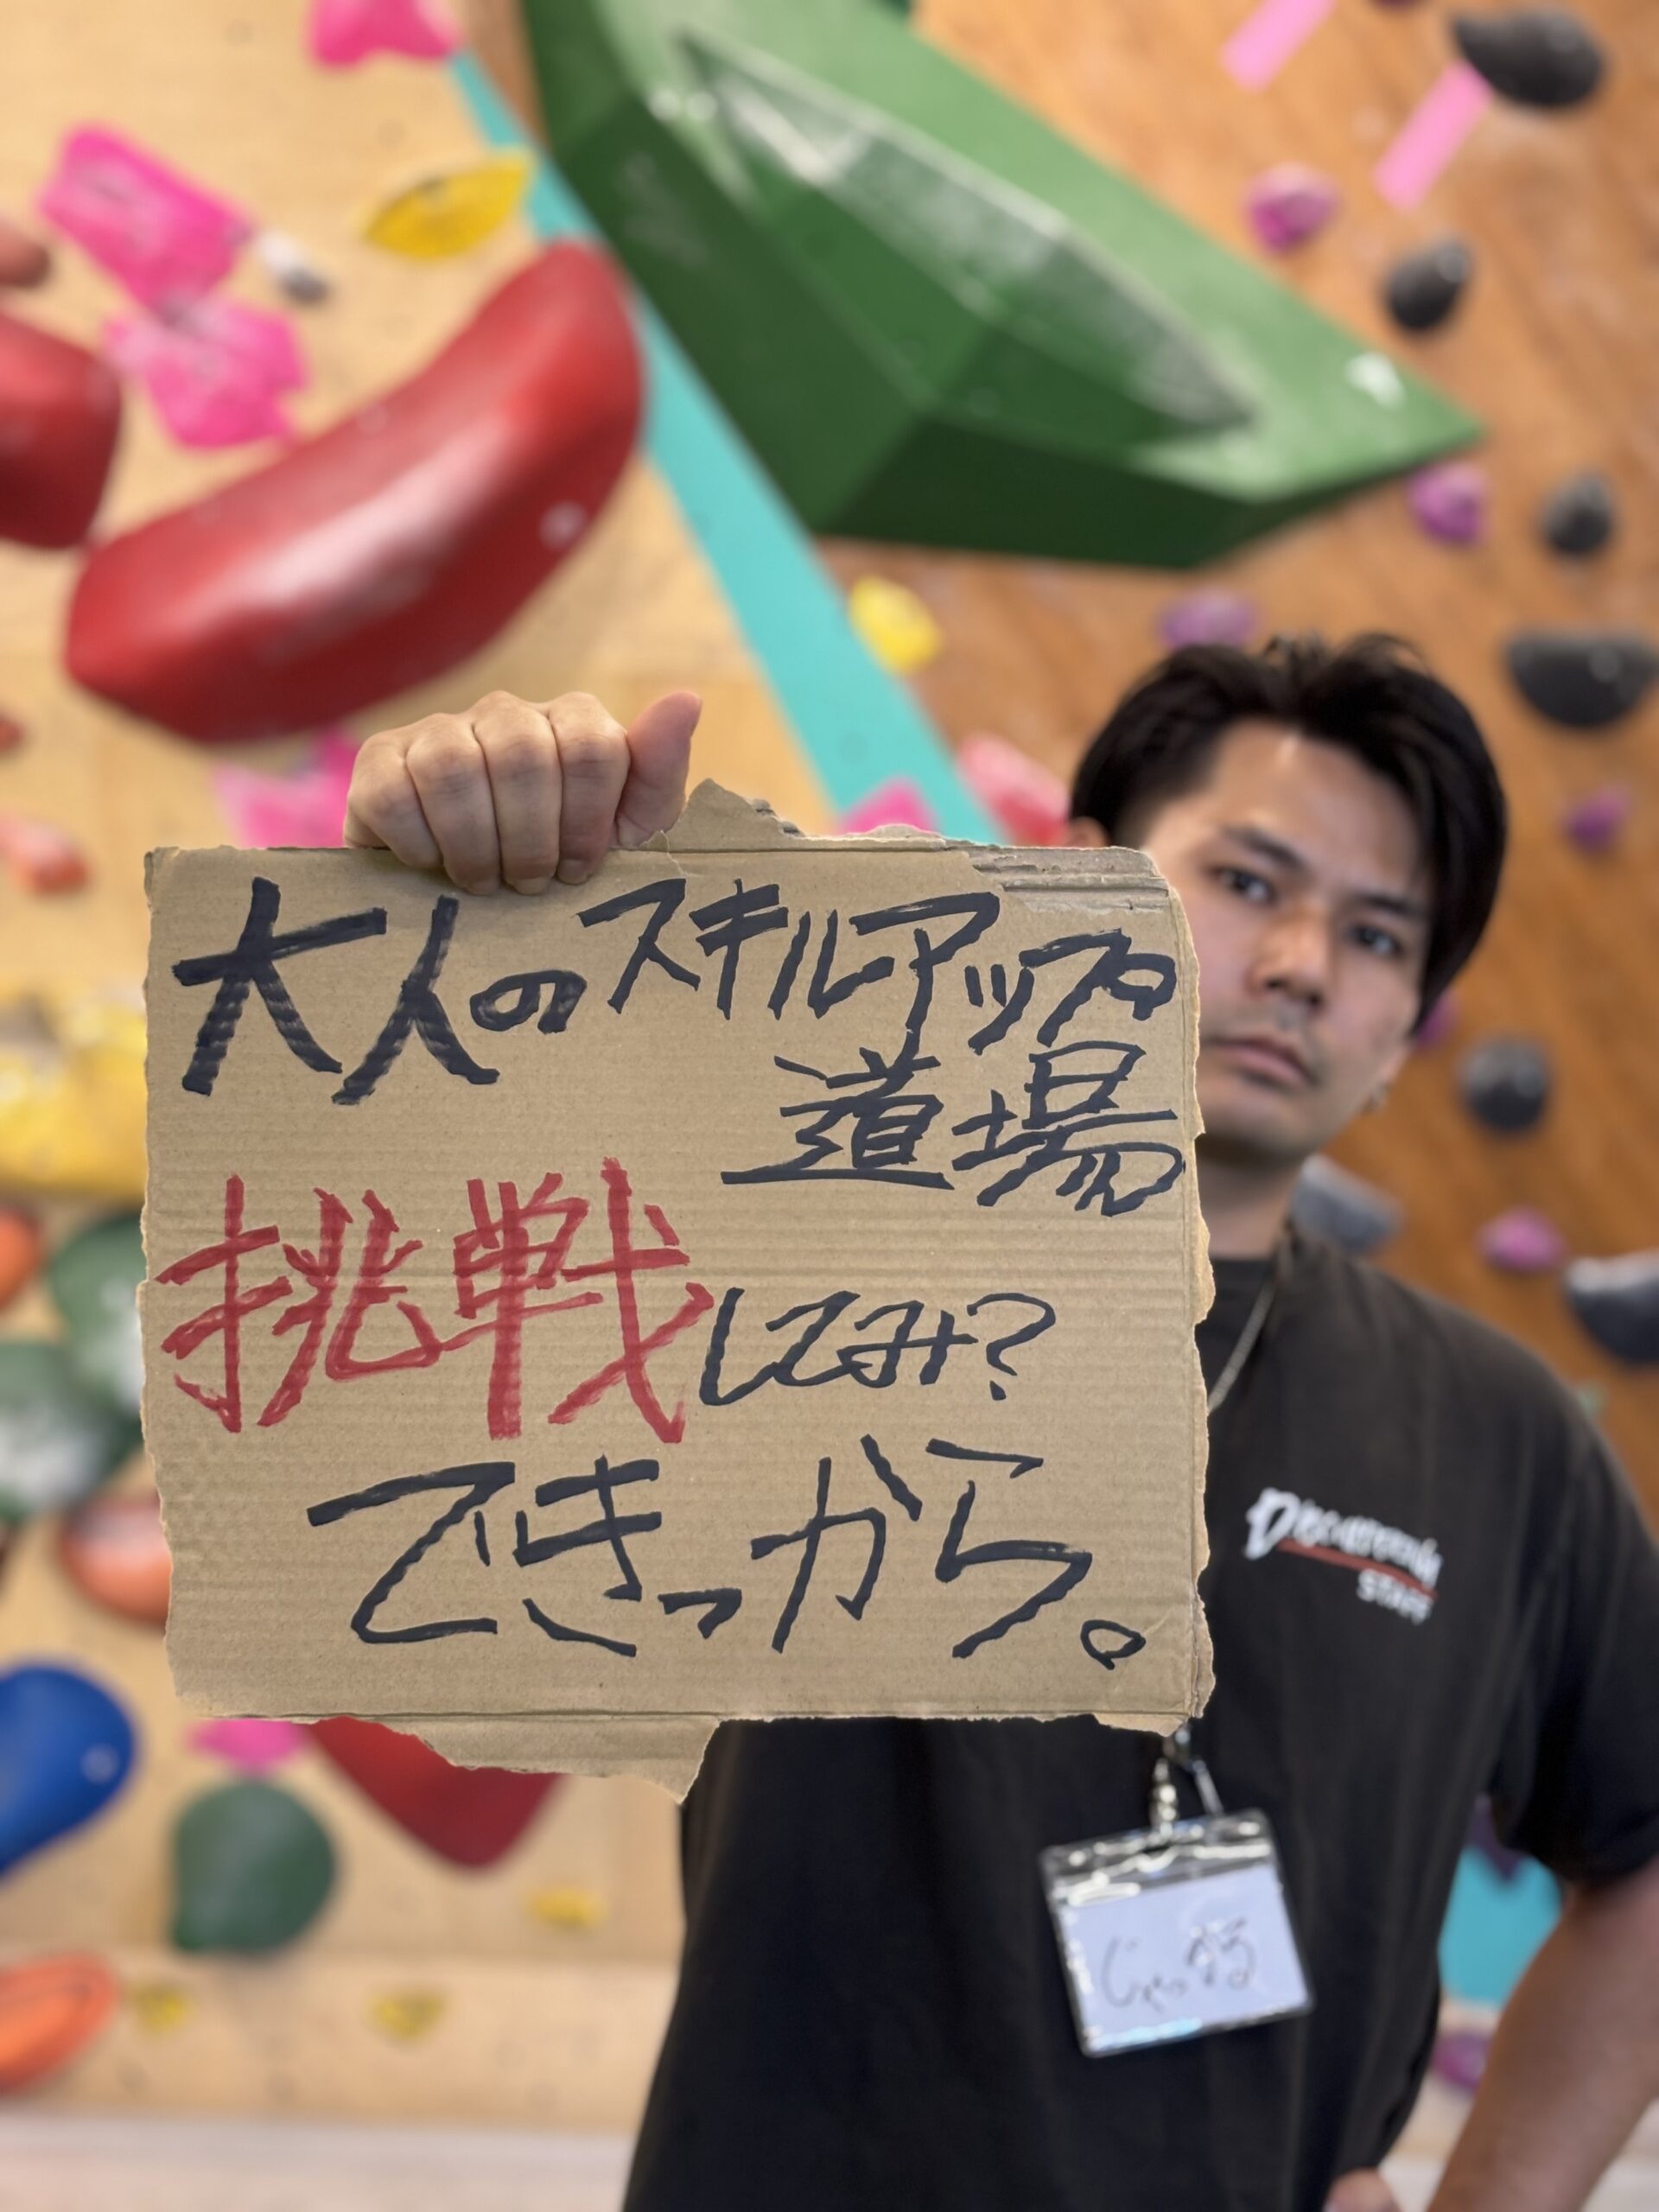 大人のスキルアップ
道場
挑戦してみ?
できっから。
STAFF